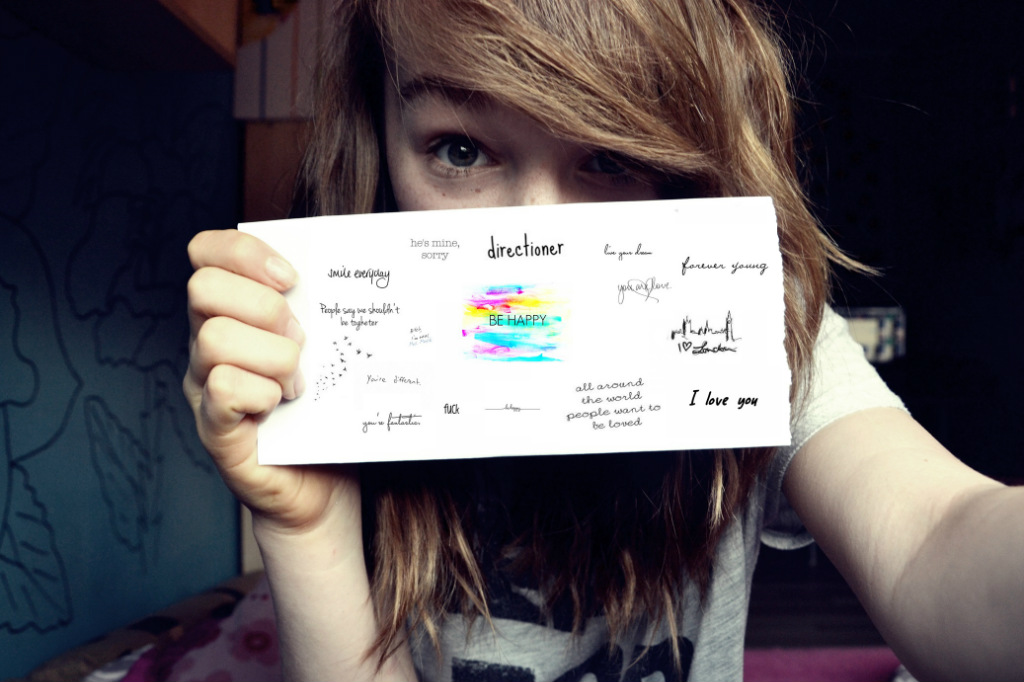 he's mine,
sorry
directioner
live your dream
forever young
smile everyday
you and love
People say we shouldn't
be togheter
BE HAPPY
I ♥ London
You're different.
you're fantastic.
fuck
all around
the world
people want to
be loved
I love you